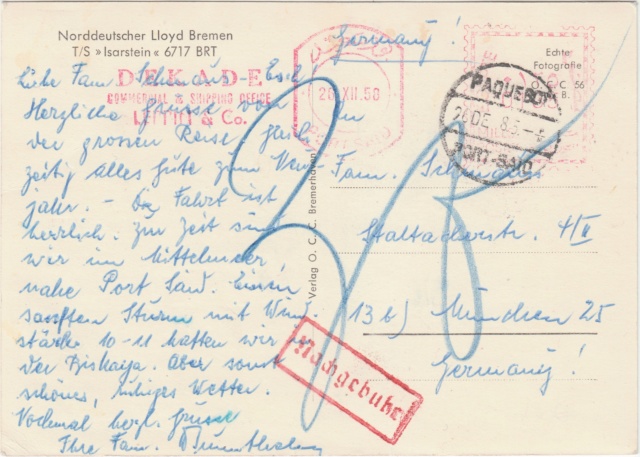 Norddeutscher Lloyd Bremen
T/S »Isarstein« 6717 BRT
Germany!
Echte
Fotografie
O. C. C 56
B.
DEKADE
COMMERCIAL & SHIPPING OFFICE
& Co.
26.XII.58
PORT-SAID
PAQUEBOT
PORT-SAID
Liebe Fam.
Herzliche Grüsse von
der grossen Reise
zeitig alles gute zum Neu
jahr. – Die Fahrt ist
herrlich. Zur Zeit sind
wir im Mittelmeer
nahe Port Said. Einen
sanften Sturm mit Wind
stärke 10-11 hatten wir in
der Biskaja. Aber sonst
schönes, ruhiges Wetter.
Nochmal herzl. Grüsse
Ihre Fam.
Verlag O. C. C. Bremerhaven
An
Fam.
4/II
13b) München 25
Germany!
Nachgebühr